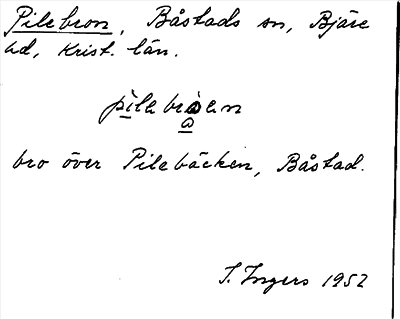 Pilebron, Båstads sn, Bjäre
hd, Krist. län.
bro över Pilebäcken, Båstad.
I. Ingers 1952